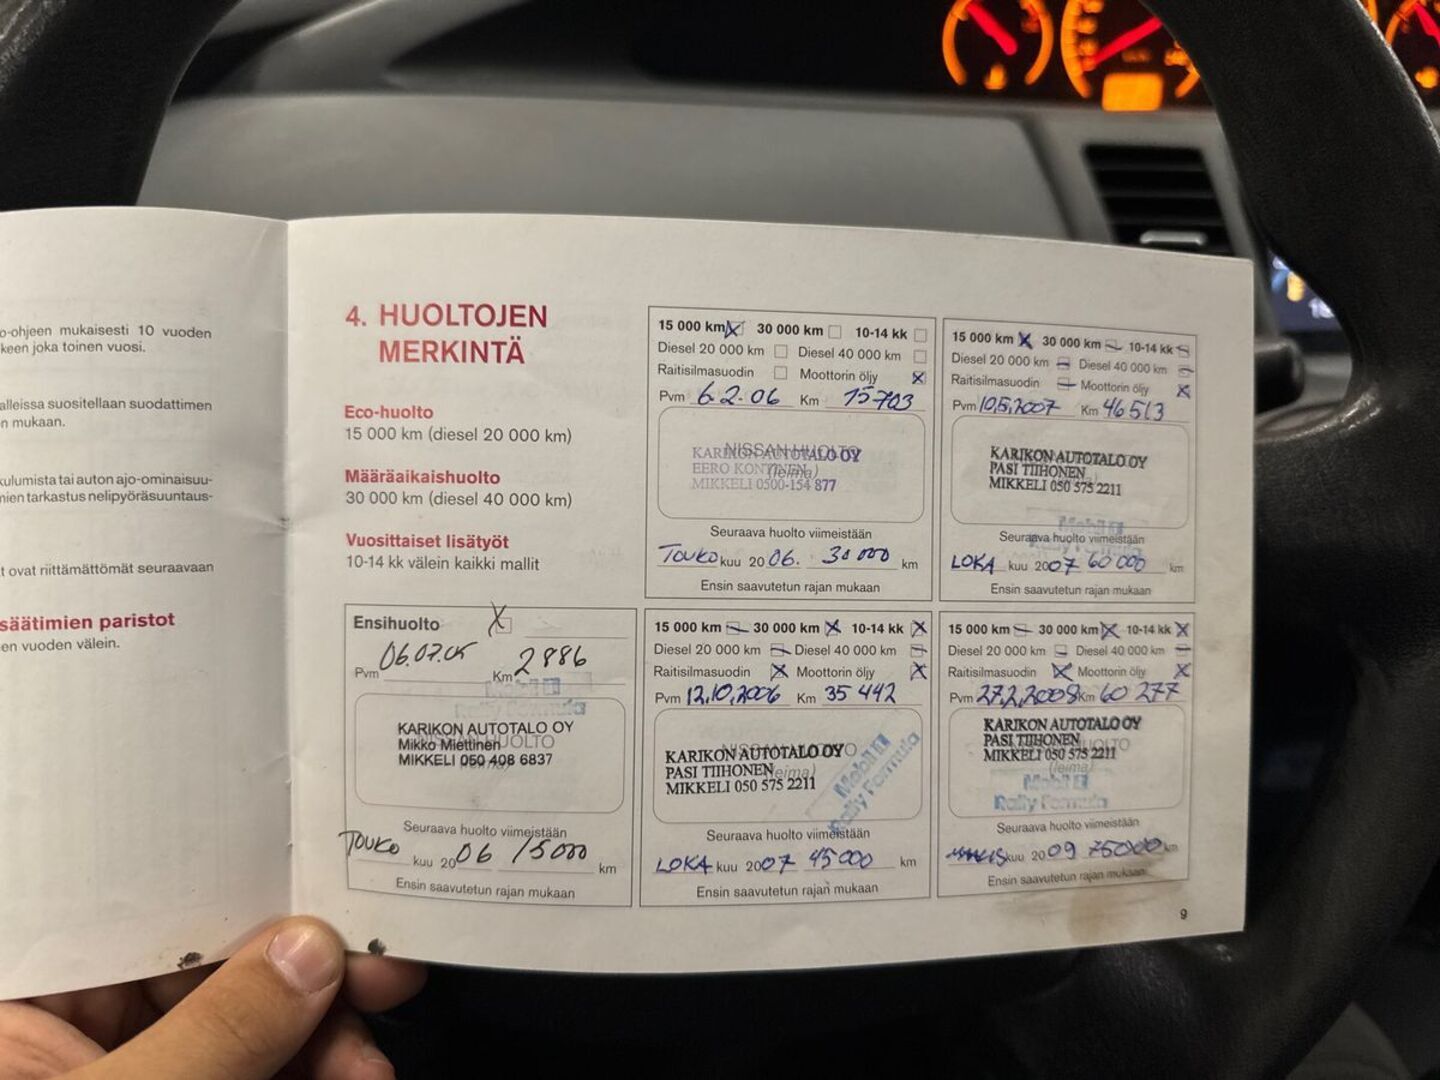 o-ohjeen mukaisesti 10 vuoden
keen joka toinen vuosi.
alleissa suositellaan suodattimen
n mukaan.
kulumista tai auton ajo-ominaisuu-
mien tarkastus nelipyöräsuuntaus-
t ovat riittämättömät seuraavaan
säätimien paristot
en vuoden välein.
4. HUOLTOJEN
MERKINTÄ
Eco-huolto
15 000 km (diesel 20 000 km)
Määräaikaishuolto
30 000 km (diesel 40 000 km)
Vuosittaiset lisätyöt
10-14 kk välein kaikki mallit
Ensihuolto
Pvm 06.07.05 Km 2886
NISSAN HUOLTO
KARIKON AUTOTALO OY
Mikko Miettinen
MIKKELI 050 408 6837
Seuraava huolto viimeistään
TOUKO kuu 2006 15000 km
Ensin saavutetun rajan mukaan
15 000 km 30 000 km 10-14 kk
Diesel 20 000 km Diesel 40 000 km
Raitisilmasuodin Moottorin öljy
Pvm 6.2.06 Km 15703
NISSAN HUOLTO
(leima)
KARIKON AUTOTALO OY
EERO KONTINEN
MIKKELI 0500-154 877
Seuraava huolto viimeistään
TOUKO kuu 2006. 30 000 km
Ensin saavutetun rajan mukaan
15 000 km 30 000 km 10-14 kk
Diesel 20 000 km Diesel 40 000 km
Raitisilmasuodin Moottorin öljy
Pvm 10.5.2007 Km 46513
KARIKON AUTOTALO OY
PASI TIIHONEN
MIKKELI 050 575 2211
Mobil 1
Rally Formula
Seuraava huolto viimeistään
LOKA kuu 2007 60 000 km
Ensin saavutetun rajan mukaan
15 000 km 30 000 km 10-14 kk
Diesel 20 000 km Diesel 40 000 km
Raitisilmasuodin Moottorin öljy
Pvm 12.10.2006 Km 35 442
NISSAN HUOLTO
(leima)
KARIKON AUTOTALO OY
PASI TIIHONEN
MIKKELI 050 575 2211
Mobil 1
Rally Formula
Seuraava huolto viimeistään
LOKA kuu 2007 45000 km
Ensin saavutetun rajan mukaan
15 000 km 30 000 km 10-14 kk
Diesel 20 000 km Diesel 40 000 km
Raitisilmasuodin Moottorin öljy
Pvm 27.2.2008 Km 60 277
KARIKON AUTOTALO OY
PASI TIIHONEN
MIKKELI 050 575 2211
(leima)
Mobil 1
Rally Formula
Seuraava huolto viimeistään
kuu 2009 75000 km
Ensin saavutetun rajan mukaan
9